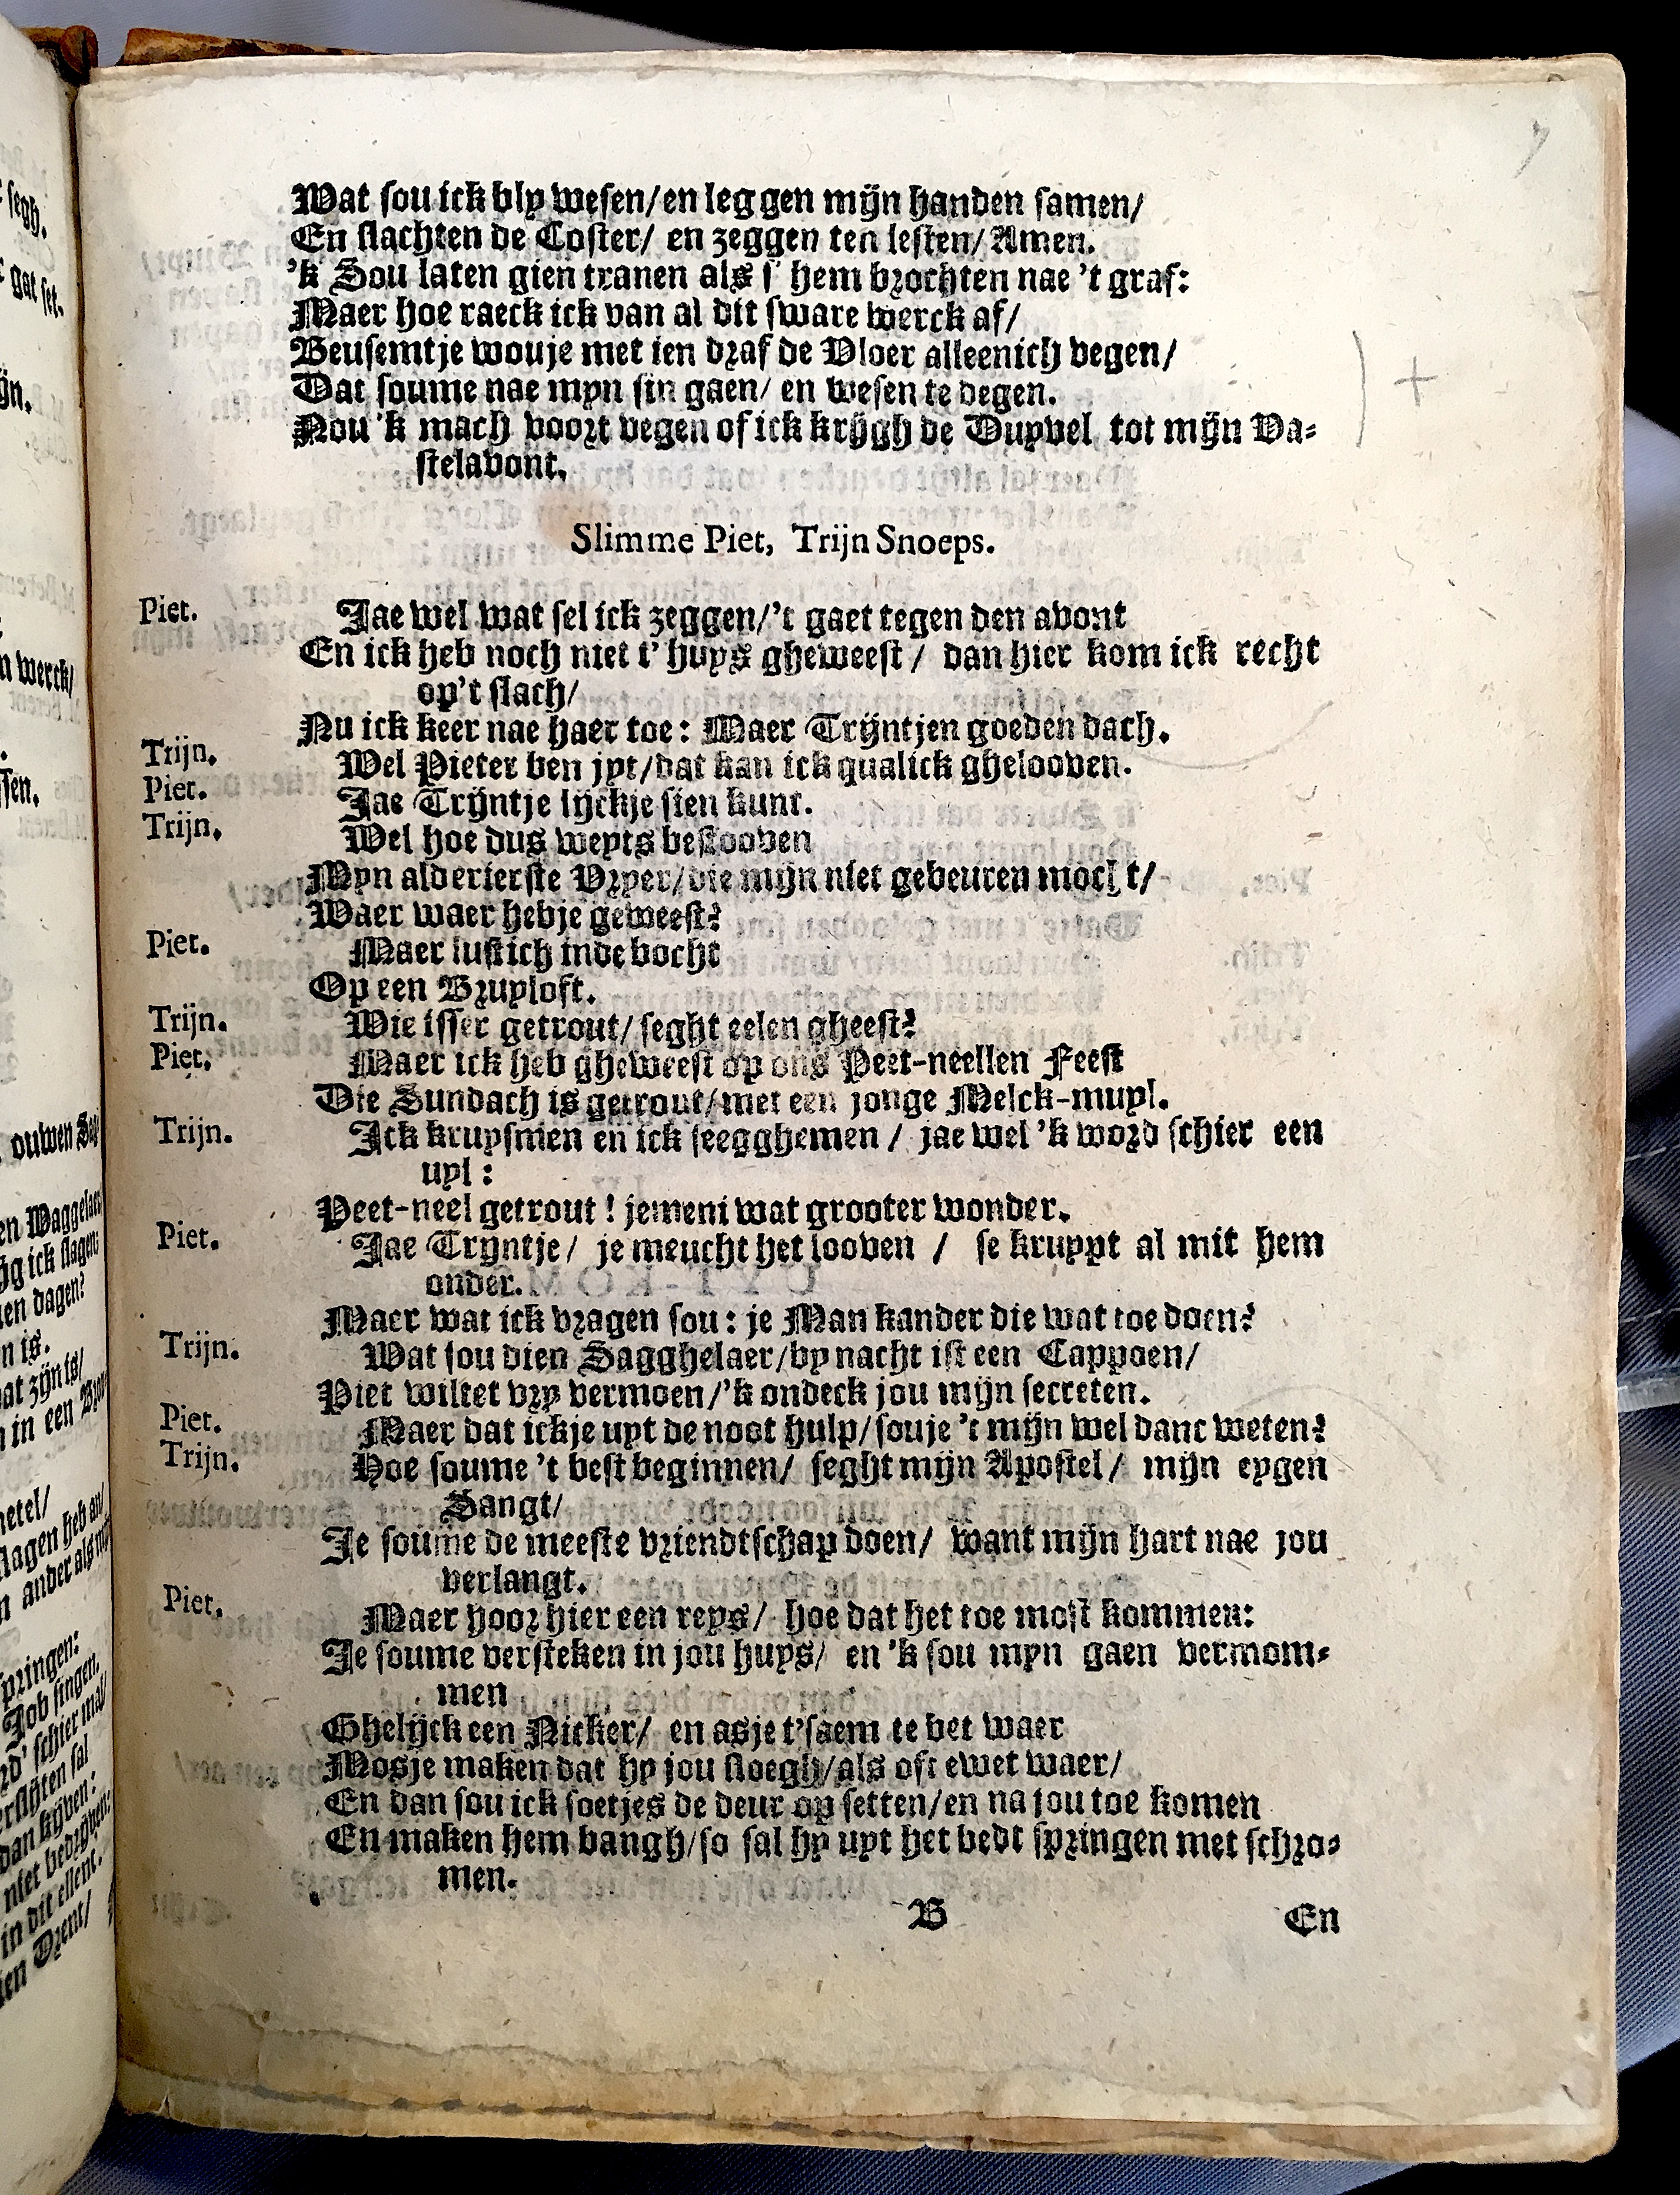 Wat sou ick bly wesen/en leggen mijn handen samen/
En slachten de Coster/ en zeggen ten lesten/Amen.
'k Sou laten gien tranen als s' hem brochten nae 't graf:
Maer hoe raeck ick van al dit sware werck af/
Beusemtje wouje met ien draf de Vloer alleenich vegen/
Dat soume nae myn sin gaen/ en wesen te degen.
Nou 'k mach voort vegen of ick krijgh de Duyvel tot mijn Va-
stelavont.
Slimme Piet, Trijn Snoeps.
Piet. Jae wel wat sel ick zeggen/'t gaet tegen den avont
En ick heb noch niet t' huys gheweest / dan hier kom ick recht
op't slach/
Nu ick keer nae haer toe: Maer Trijntjen goeden dach.
Trijn. Wel Pieter ben jyt/dat kan ick qualick ghelooven.
Piet. Jae Trijntje lijckje sien kunt.
Trijn. Wel hoe dus weyts bestooven
Myn alderierste Vryer/die mijn niet gebeuren mocht/
Waer waer hebje geweest?
Piet. Maer lustich inde bocht
Op een Bruyloft.
Trijn. Wie isser getrout/ seght eelen gheest?
Piet. Maer ick heb gheweest op ons Peet-neellen Feest
Die Sundach is getrout/met een jonge Melck-muyl.
Trijn. Ick kruysmen en ick seegghemen / jae wel 'k word schier een
uyl :
Peet-neel getrout ! jemeni wat grooter wonder.
Piet. Jae Tryntje/ je meucht het looven / se kruypt al mit hem
onder.
Maer wat ick vragen sou: je Man kander die wat toe doen?
Trijn. Wat sou dien Sagghelaer/by nacht ist een Cappoen/
Piet wiltet vry vermoen/'k ondeck jou mijn secreten.
Piet. Maer dat ickje uyt de noot hulp/souje 't mijn wel danc weten?
Trijn. Hoe soume 't best beginnen/ seght mijn Apostel/ mijn eygen
Sangt/
Je soume de meeste vriendtschap doen/ want mijn hart nae jou
verlangt.
Piet. Maer hoor hier een reys/ hoe dat het toe most kommen:
Je soume versteken in jou huys/ en 'k sou myn gaen vermom-
men
Ghelijck een Nicker/ en asje t'saem te bet waer
Mosje maken dat hy jou sloegh/als oft ewet waer/
En dan sou ick soetjes de deur op setten/en na jou toe komen
En maken hem bangh/so sal hy uyt het bedt springen met schro-
men.
B En